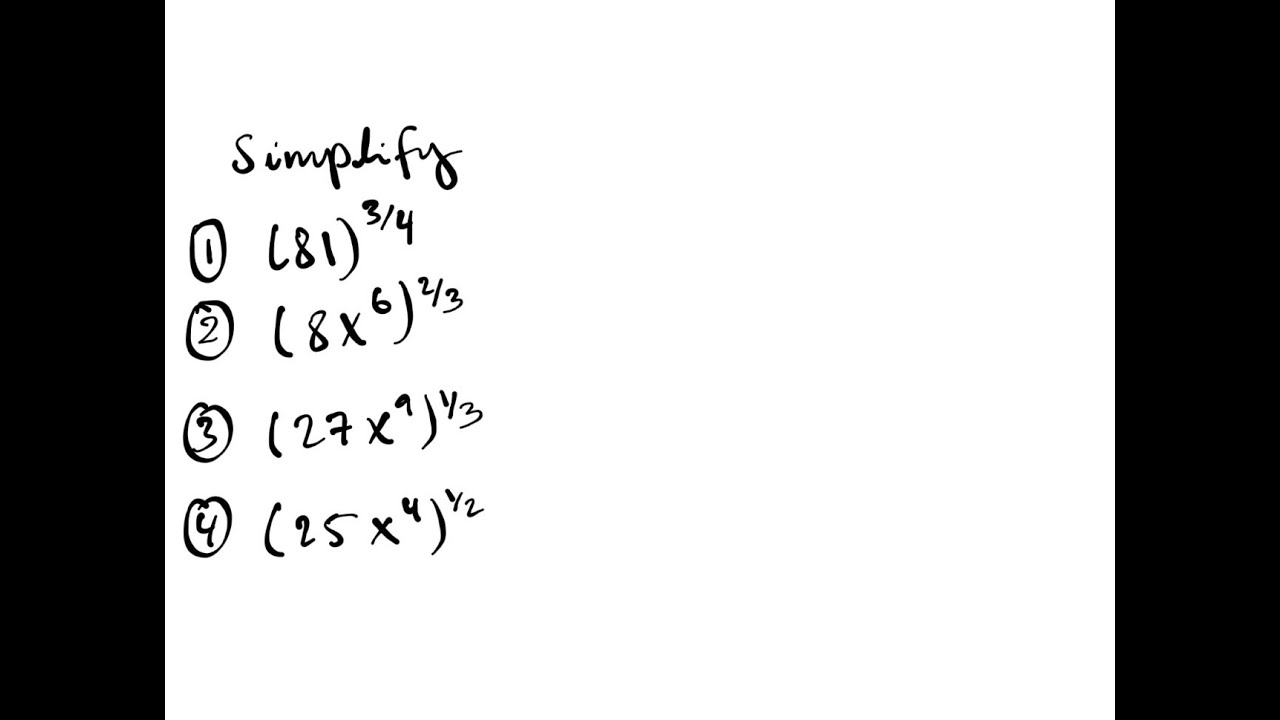 Simplify
① (81)^{3/4}
② (8x^6)^{2/3}
③ (27x^9)^{1/3}
④ (25x^4)^{1/2}